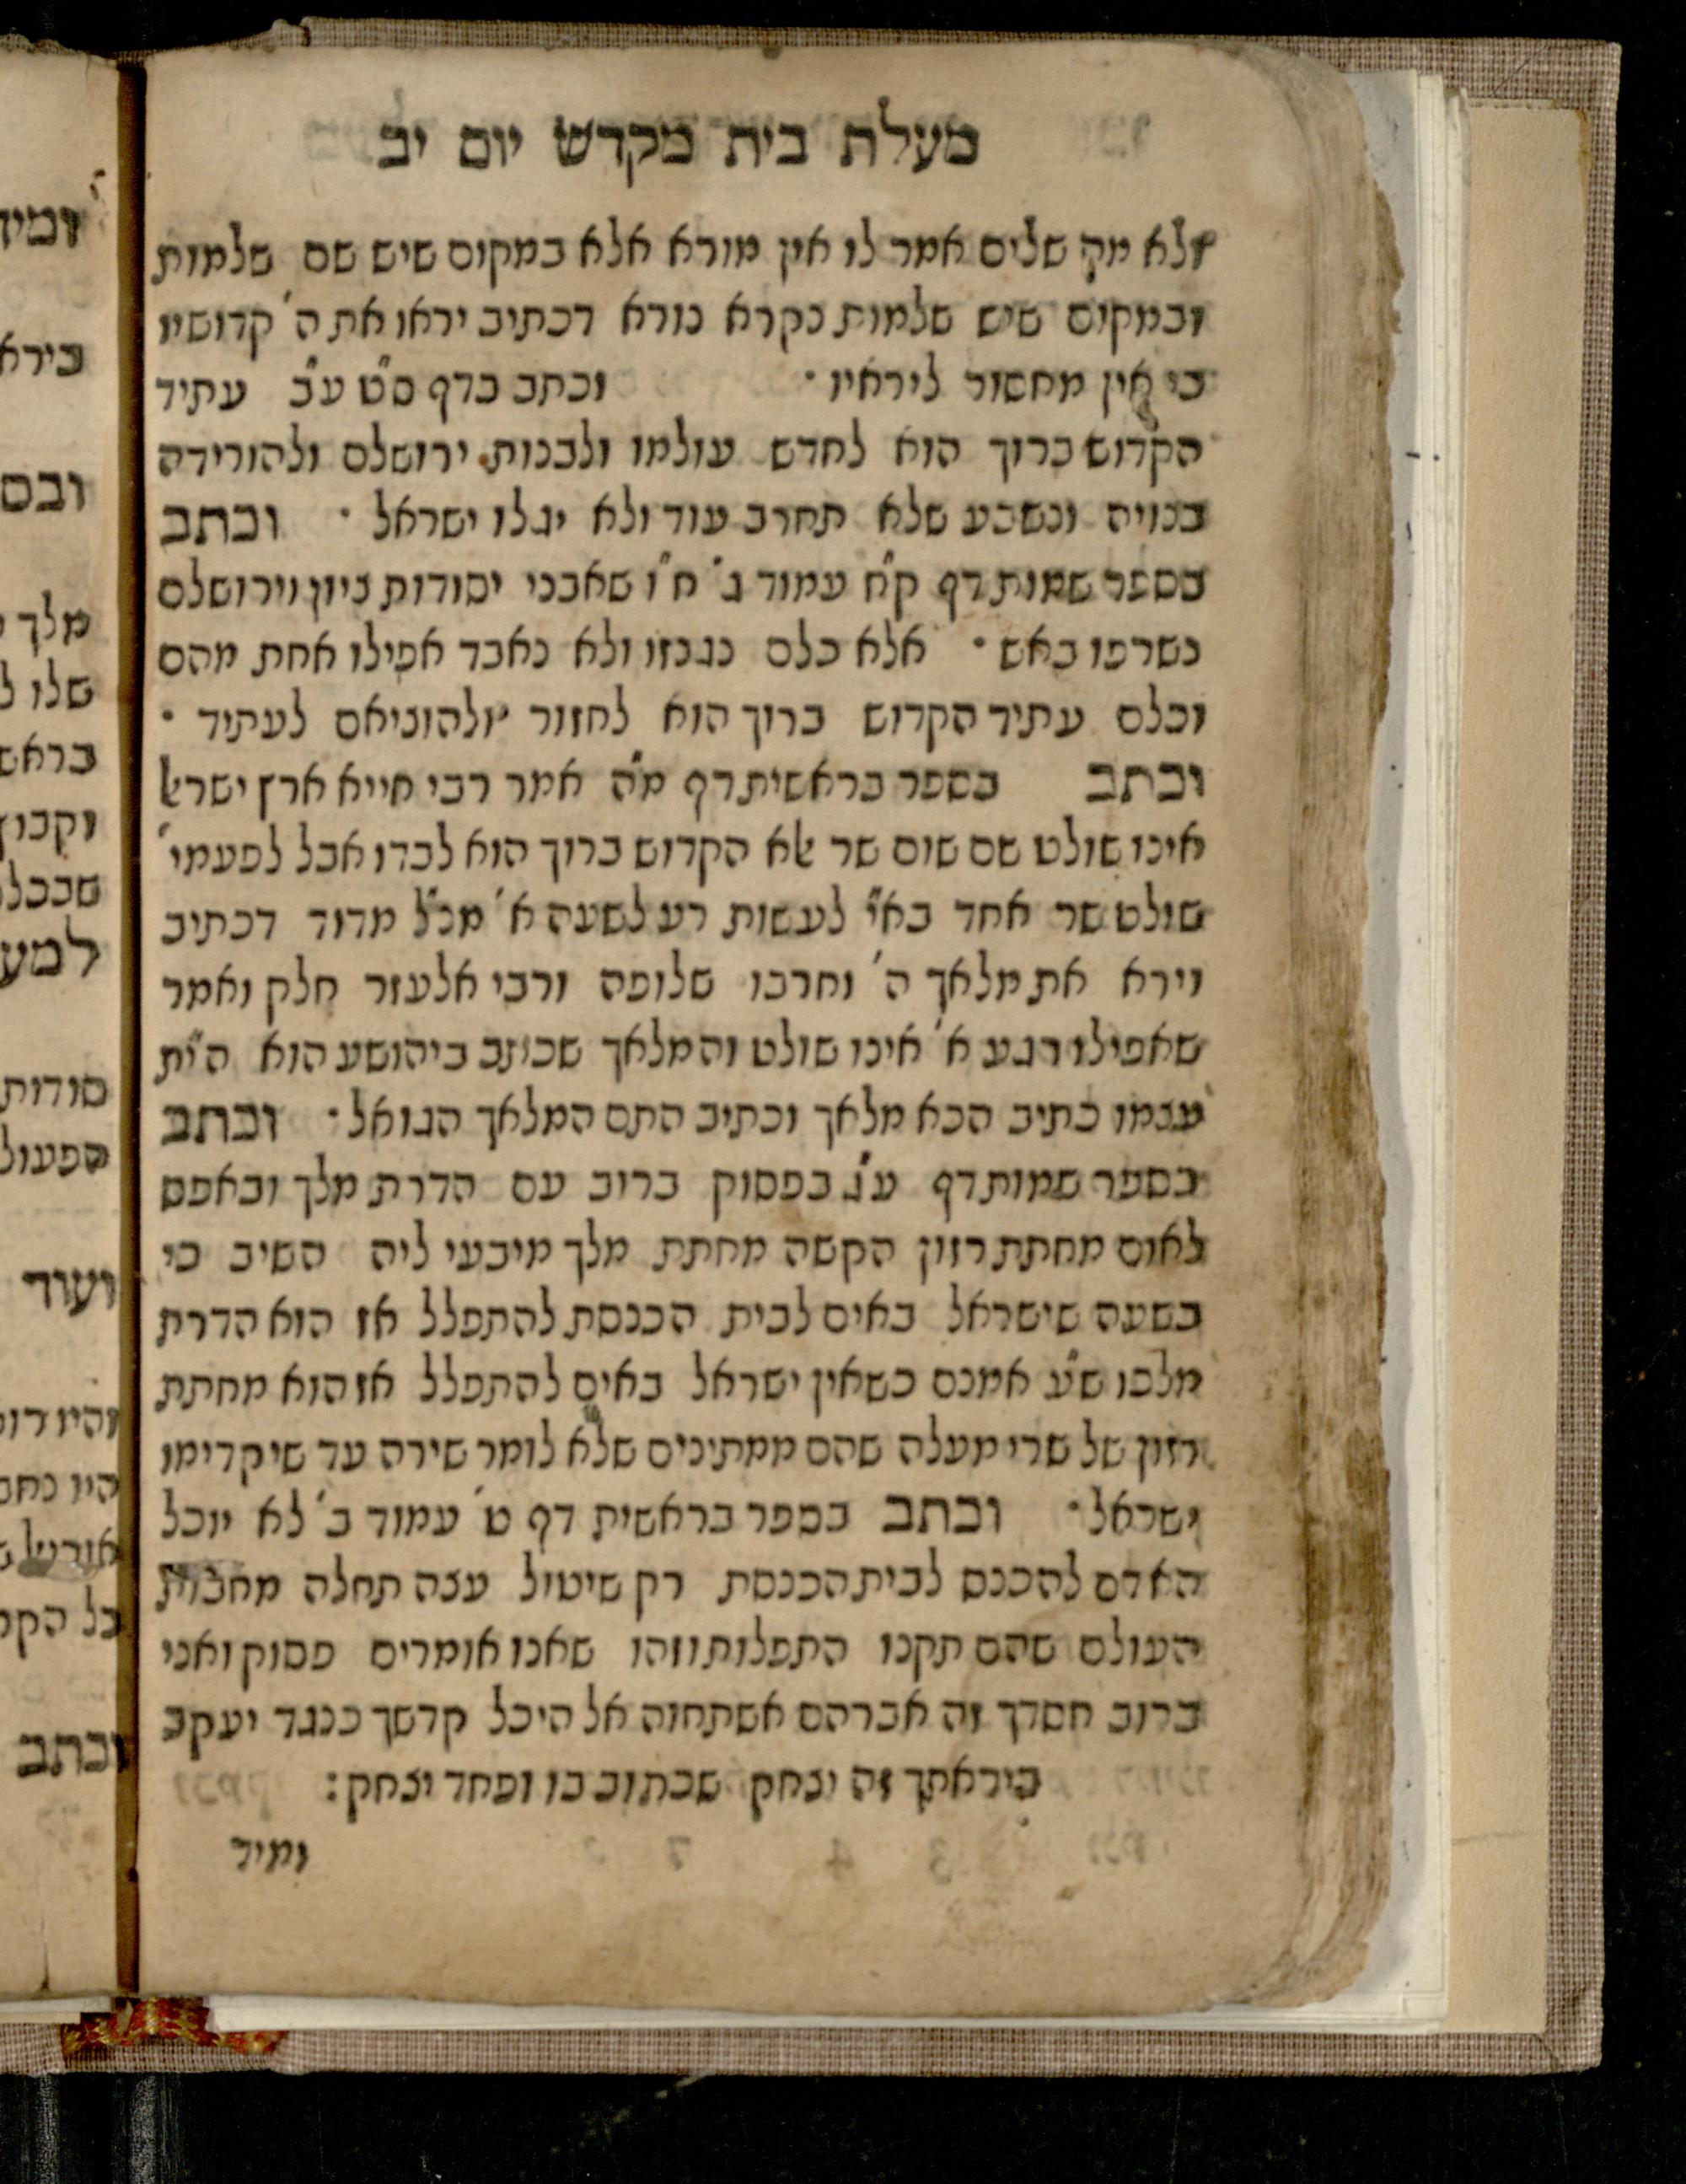 מעלת בית מקדש יום יב
ולא מק׳ שלים אמר לו אין מורא אלא במקום שיש שם שלמות
ובמקום שיש שלמות נקרא נורא דכתיב יראו את ה׳ קדושיו
כי אין מחסור ליראיו · וכתב בדף ס״ט ע״ב עתיד
הקדוש ברוך הוא לחדש עולמו ולבנות ירושלם ולהורידה
בנויה ונשבע שלא תחרב עוד ולא יגלו ישראל · וכתב
בספר שמות דף ק״ח עמוד ג׳ ח״ו שאבני יסודות ציון וירושלם
נשרפו באש · אלא כלם נגנזו ולא נאבד אפילו אחת מהם
וכלם עתיד הקדוש ברוך הוא לחזור ולהוציאם לעתיד ·
וכתב בספר בראשית דף מ״ה אמר רבי חייא ארץ ישראל
אינו שולט שם שום שר אלא הקדוש ברוך הוא לבדו אבל לפעמי׳
שולט שר אחד בא״י לעשות רע לשעה א׳ מכ״ל מדוד דכתיב
וירא את מלאך ה׳ וחרבו שלופה ורבי אלעזר חלק ואמר
שאפילו רגע א׳ אינו שולט והמלאך שכותב ביהושע הוא הי״ת
עצמו כתיב הכא מלאך וכתיב התם המלאך הגואל · וכתב
בספר שמות דף ע״ג בפסוק ברוב עם הדרת מלך ובאפס
לאום מחתת רזון הקשה מחתת מלך מיבעי ליה השיב כי
בשעה שישראל באים לבית הכנסת להתפלל אז הוא הדרת
מלכו ש״ע אמנם כשאין ישראל באים להתפלל אז הוא מחתת
רזון של שרי מעלה שהם ממתינים שלא לומר שירה עד שיקדימו
ישראל · וכתב בספר בראשית דף ט׳ עמוד ב׳ לא יוכל
האדם להכנס לבית הכנסת רק שיטול עצה תחלה מחבות
העולם שהם תקנו התפלות וזהו שאנו אומרים פסוק ואני
ברוב חסדך זה אברהם אשתחוה אל היכל קדשך כנגד יעקב
ביראתך זה יצחק שכתוב בו ופחד יצחק :
ומיד